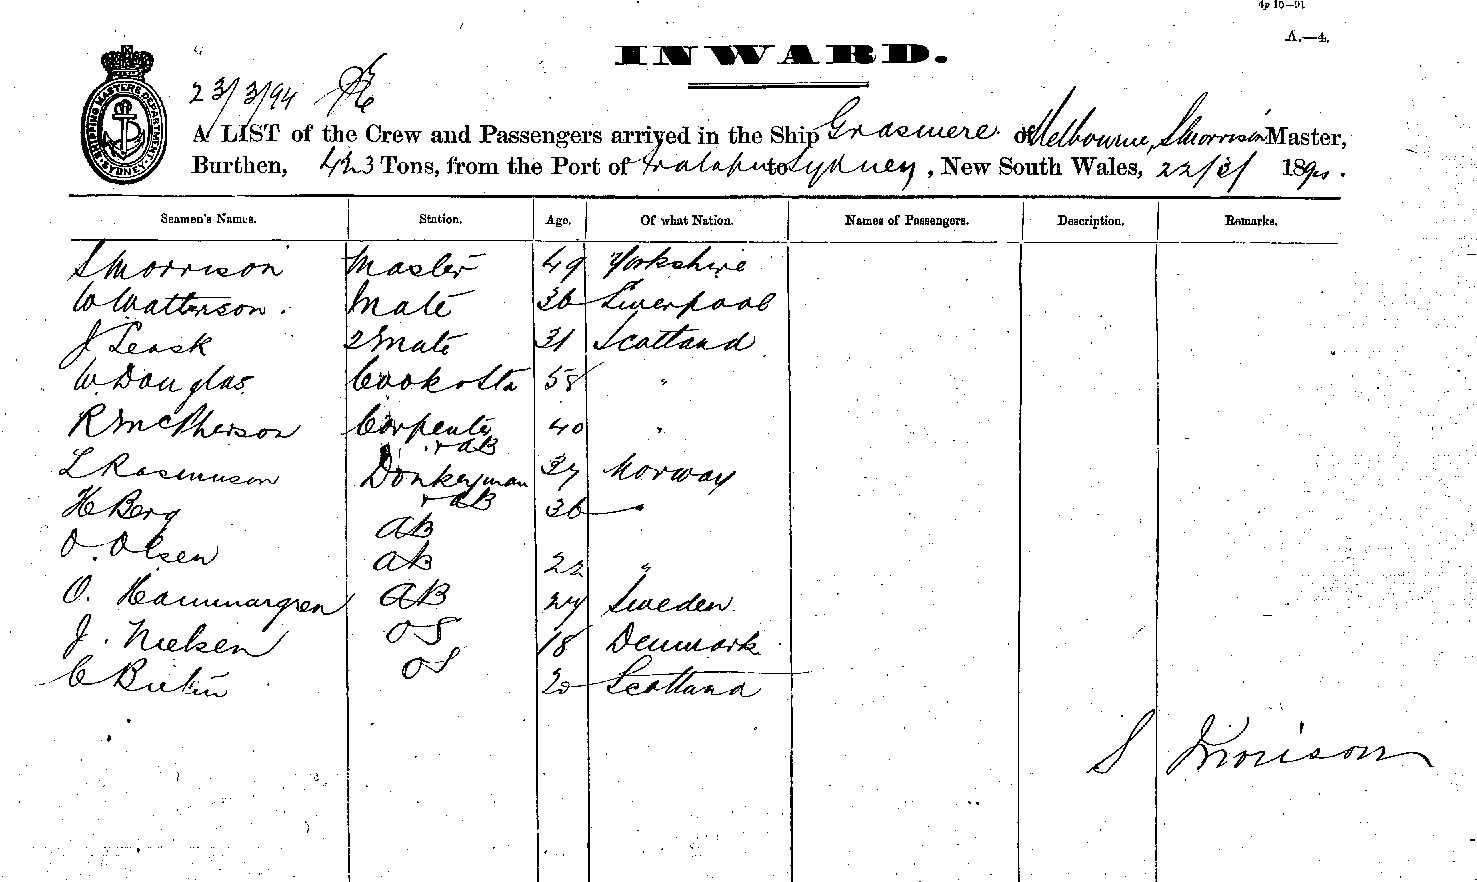 4p 10—91
A.—4.
INWARD.
SHIPPING MASTERS DEPARTMENT SYDNEY
23/3/94
A LIST of the Crew and Passengers arrived in the Ship Grasmere of Melbourne, S Morrison Master,
Burthen, 423 Tons, from the Port of to Sydney, New South Wales, 22/3/ 1894.
Seamen's Names. Station. Age. Of what Nation. Names of Passengers. Description. Remarks.
S Morrison Master 49 Yorkshire
W Watterson. Mate 36 Liverpool
J Leask 2 Mate 31 Scotland
W. Douglas Cook & Std 58 "
R McPherson Carpenter & AB 40 "
L Rasmuson Donkeyman & AB 37 Norway
H Berg AB 36 "
O. Olsen AB 22 "
O. Hammargren AB 24 Sweden
J. Nielsen OS 18 Denmark
C OS 20 Scotland
S Morison